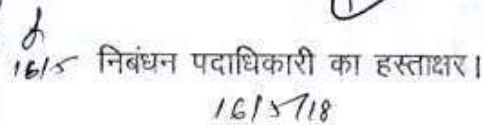 16/5 निबंधन पदाधिकारी का हस्ताक्षर।
16/5/18